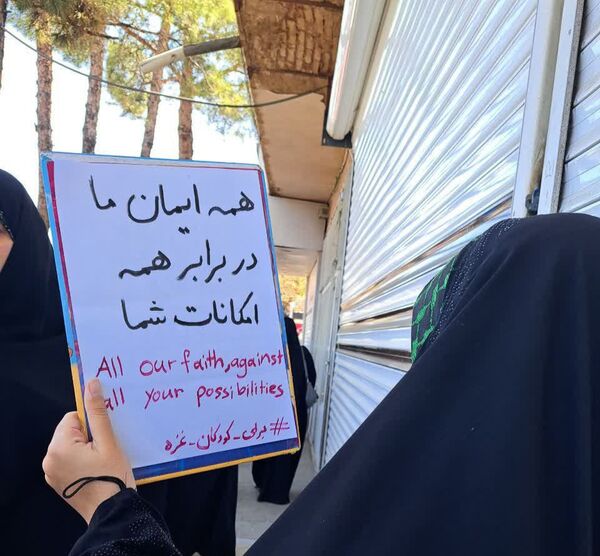 همه ایمان ما
در برابر همه
امکانات شما
All our faith, against
all your possibilities
#برای_کودکان_غزه